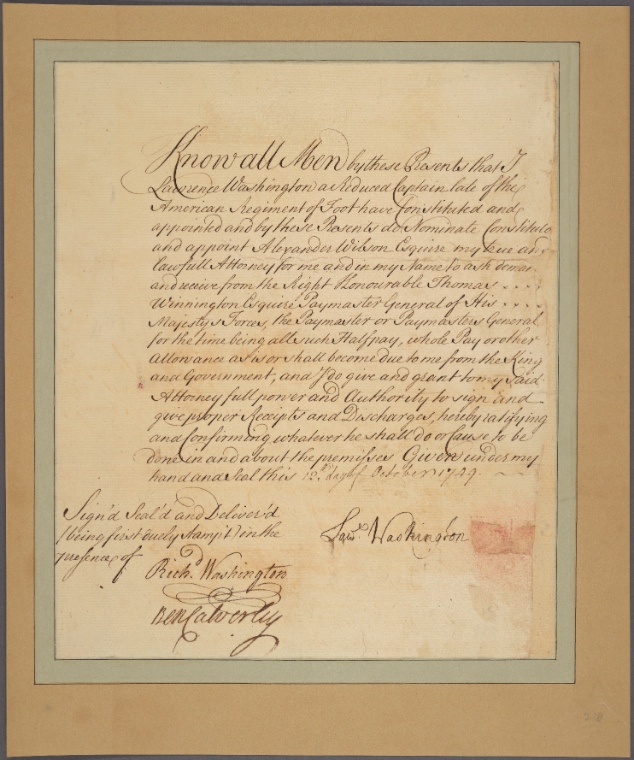 Know all Men by these Presents that I
Lawrence Washington a Reduced Captain late of the
American Regiment of Foot have Constituted and
appointed and by these Presents do Nominate Constitute
and appoint Alexander Wilson Esquire my true and
lawfull Attorney for me and in my Name to ask deman
and receive from the Right Honourable Thomas . . . .
Winnington Esquire Paymaster General of His . . . .
Majestys Forces, the Paymaster or Paymasters General
for the time being all such Halfpay, whole Pay or other
Allowance as is or shall become due to me from the King
and Government, and I do give and grant to my said
Attorney full power and Authority to sign and
give proper Receipts and Discharges, hereby ratifying
and confirming whatever he shall do or Cause to be
done in and about the premisses Given under my
hand and Seal this 12th day of October 1749
Sign'd Seal'd and Deliver'd
(being first duly stampt) in the
presence of
Lawe. Washington
Richd. Washington
Ben Calverley